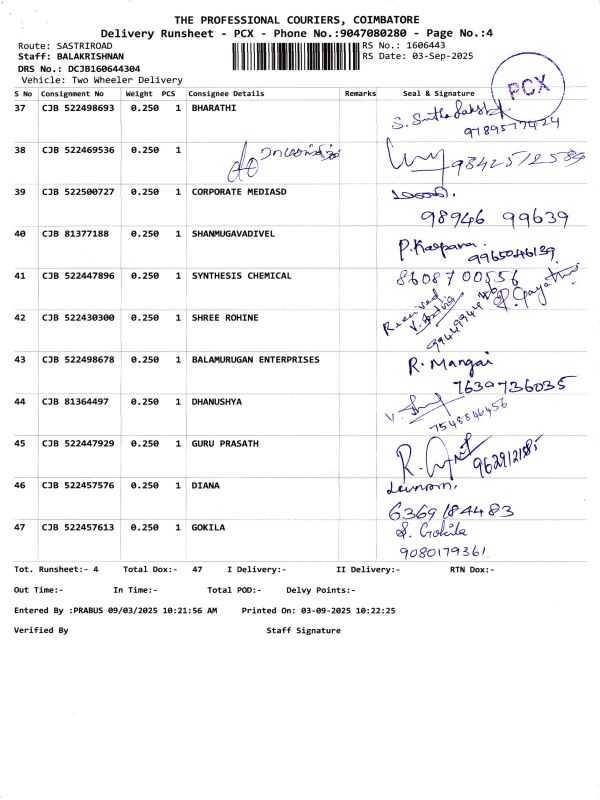 THE PROFESSIONAL COURIERS, COIMBATORE
Delivery Runsheet - PCX - Phone No.:9047080280 - Page No.:4
Route: SASTRIROAD RS No.: 1606443
Staff: BALAKRISHNAN RS Date: 03-Sep-2025
DRS No.: DCJB160644304
Vehicle: Two Wheeler Delivery
PCX
S No Consignment No Weight PCS Consignee Details Remarks Seal & Signature
37 CJB 522498693 0.250 1 BHARATHI
9789577424
38 CJB 522469536 0.250 1
39 CJB 522500727 0.250 1 CORPORATE MEDIASD
98946 99639
40 CJB 81377188 0.250 1 SHANMUGAVADIVEL
P. Kalpana.
9965046139
41 CJB 522447896 0.250 1 SYNTHESIS CHEMICAL 8608700556
Received
42 CJB 522430300 0.250 1 SHREE ROHINE
43 CJB 522498678 0.250 1 BALAMURUGAN ENTERPRISES R. Mangai
7639736035
44 CJB 81364497 0.250 1 DHANUSHYA
7548846456
45 CJB 522447929 0.250 1 GURU PRASATH
46 CJB 522457576 0.250 1 DIANA
6369184483
47 CJB 522457613 0.250 1 GOKILA S. Gokila
9080179361
Tot. Runsheet:- 4 Total Dox:- 47 I Delivery:- II Delivery:- RTN Dox:-
Out Time:- In Time:- Total POD:- Delvy Points:-
Entered By :PRABUS 09/03/2025 10:21:56 AM Printed On: 03-09-2025 10:22:25
Verified By Staff Signature